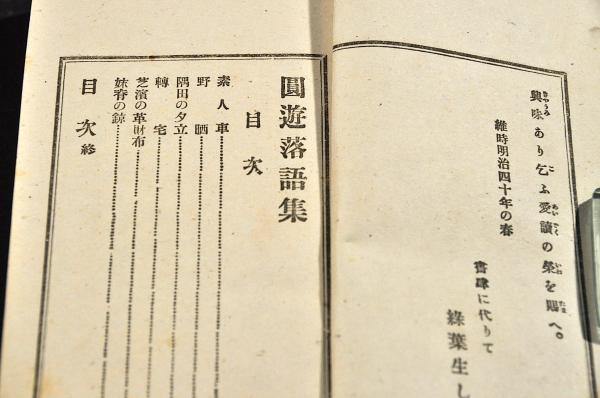 興味あり乞ふ愛讀の榮を賜へ。
維時明治四十年の春
書肆に代りて
綠葉生し
圓遊落語集
目次
素人車
野晒
隅田の夕立
轉宅
芝濱の革財布
妹脊の鯨
目次終